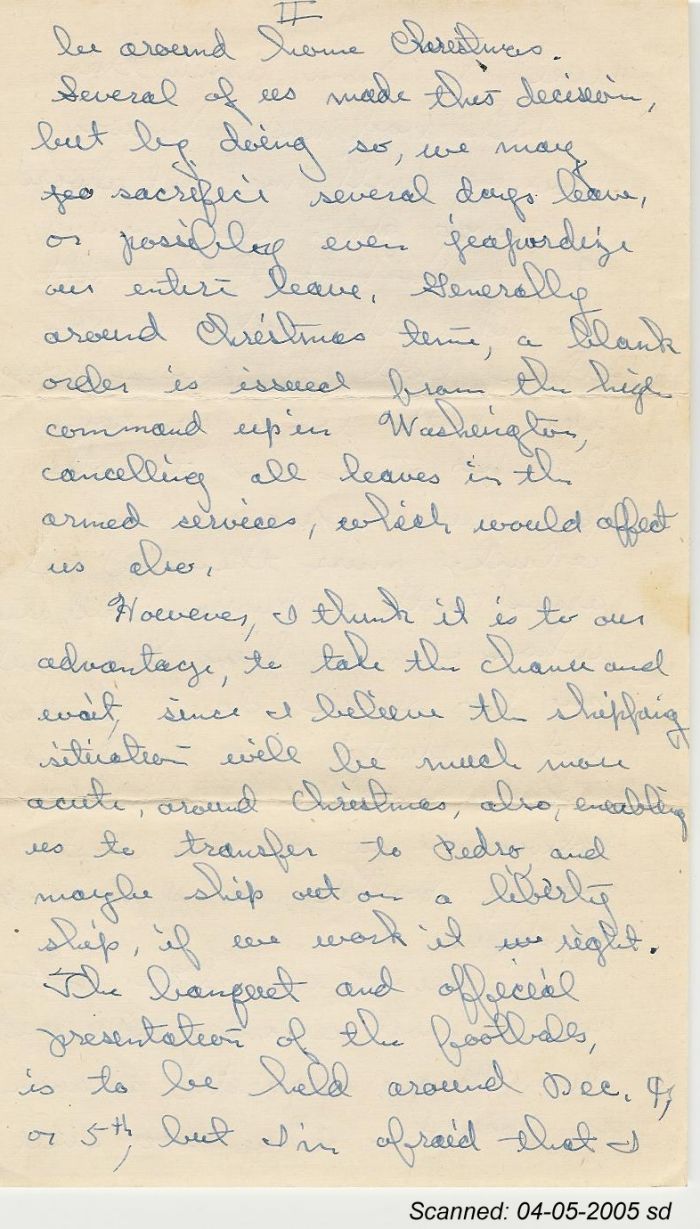 II
be around home Christmas.
Several of us made this decision,
but by doing so, we may
sacrifice several days leave,
or possibley even jeapordize
our entire leave. Generally
around Christmas time, a blank
order is issued from the high
command up in Washington,
cancelling all leaves in the
armed services, which would affect
us also.
However, I think it is to our
advantage, to take the chance and
wait, since I believe the shipping
situation will be much more
acute, around Christmas, also, enabling
us to transfer to Pedro, and
maybe ship out on a liberty
ship, if we work it right.
The banquet and official
presentation of the footballs,
is to be held around Dec. 4,
or 5th, but I'm afraid that I
Scanned: 04-05-2005 sd